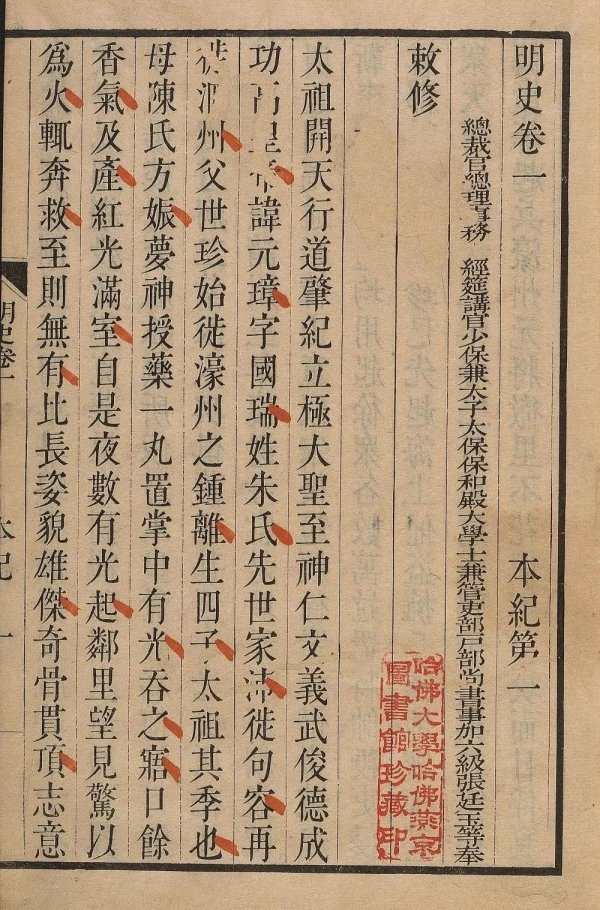 明史卷一　本紀第一
總裁官總理事務　經筵講官少保兼太子太保保和殿大學士兼管吏部戶部尚書事加六級張廷玉等奉
敕修
太祖開天行道肇紀立極大聖至神仁文義武俊德成
功高皇帝諱元璋字國瑞姓朱氏先世家沛徙句容再
徙泗州父世珍始徙濠州之鍾離生四子太祖其季也
母陳氏方娠夢神授藥一丸置掌中有光吞之寤口餘
香氣及產紅光滿室自是夜數有光起鄰里望見驚以
為火輒奔救至則無有比長姿貌雄傑奇骨貫頂志意
明史卷一　本紀　一
哈佛大學哈佛燕京
圖書館珍藏印